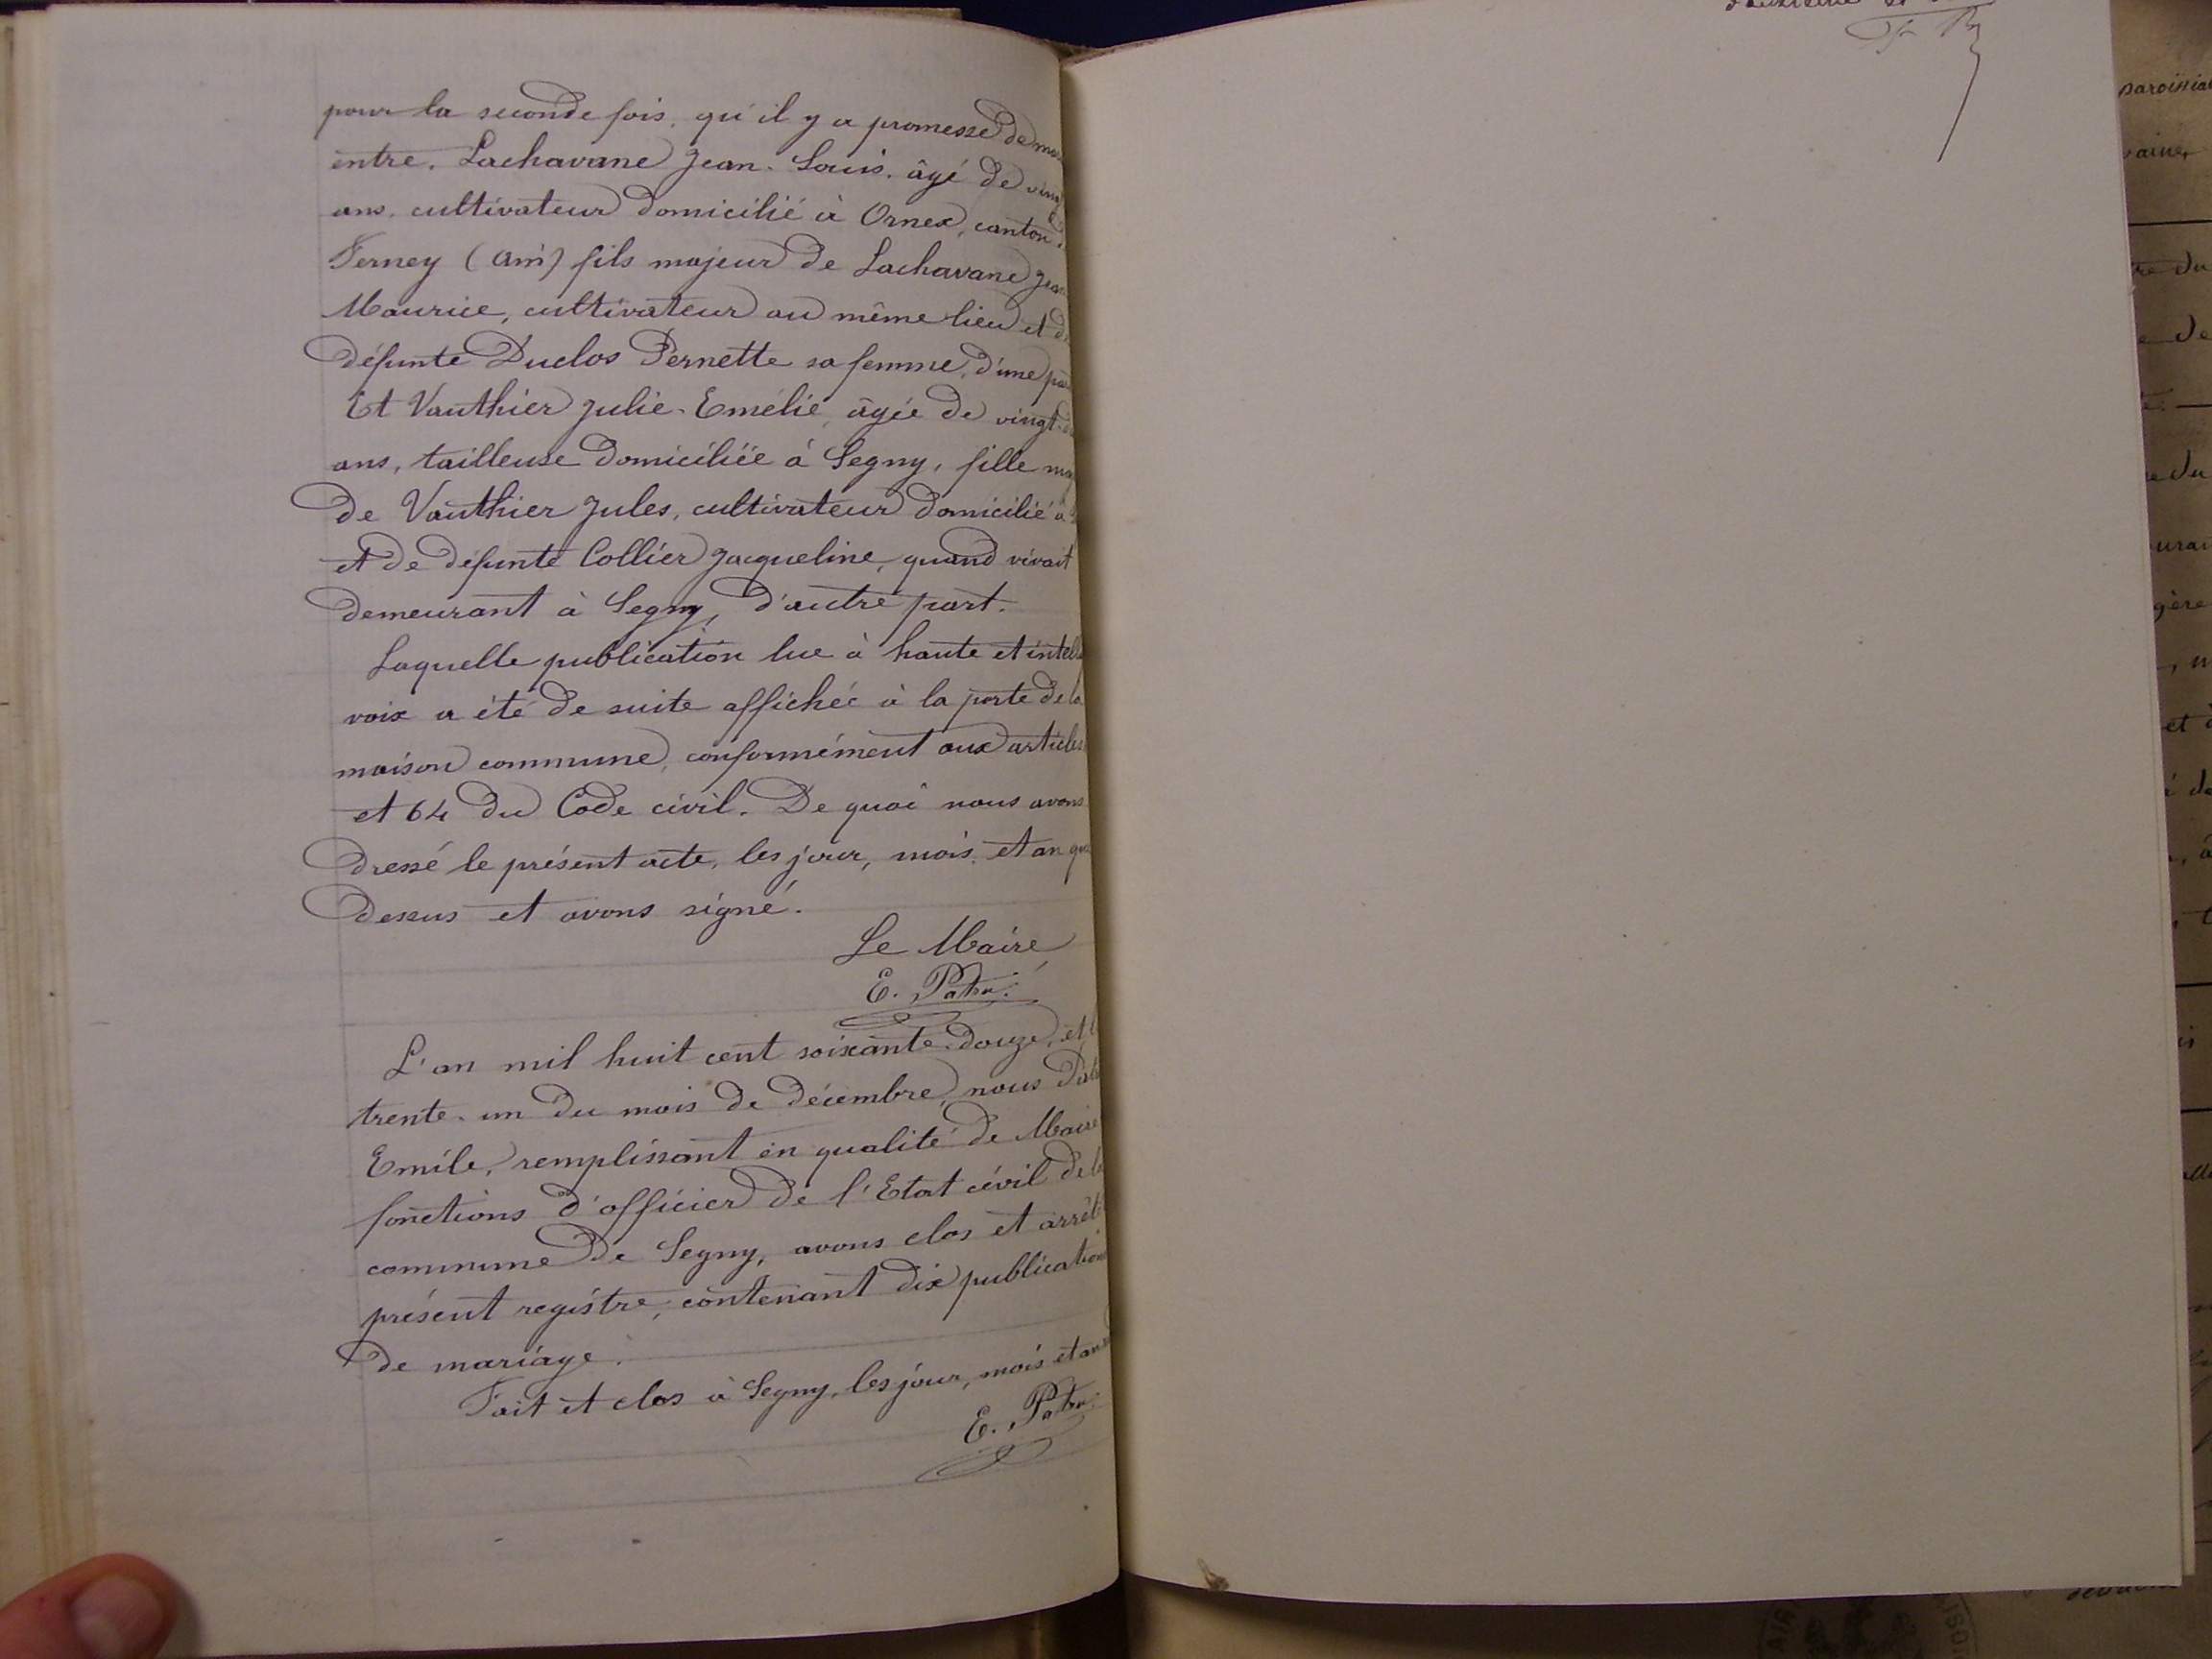 pour la seconde fois, qu'il y a promesse de
entre. Lachavane Jean-Louis. âgé de
ans, cultivateur domicilié à Ornex, canton
Ferney (Ain) fils majeur de Lachavane Jean
Maurice, cultivateur au même lieu et
défunte Duclos Pernette sa femme, d'une
Et Vauthier Julie-Emélie, âgée de vingt
ans, tailleuse domiciliée à Segny, fille
de Vauthier Jules, cultivateur domicilié à
et de défunte Collier Jacqueline, quand vivait
demeurant à Segny, d'autre part.
Laquelle publication lue à haute et
voix a été de suite affichée à la porte de la
maison commune, conformément aux articles
et 64 du Code civil. De quoi nous avons
dressé le présent acte, les jour, mois, et an
dessus et avons signé.
Le Maire
E. Patru
L'an mil huit cent soixante-douze, et
trente-un du mois de décembre, nous
Emile, remplissant en qualité de Maire
fonctions d'officier de l'Etat civil de
commune de Segny, avons clos et
présent registre, contenant dix publications
de mariage.
Fait et clos à Segny, les jour, mois et an
E. Patru